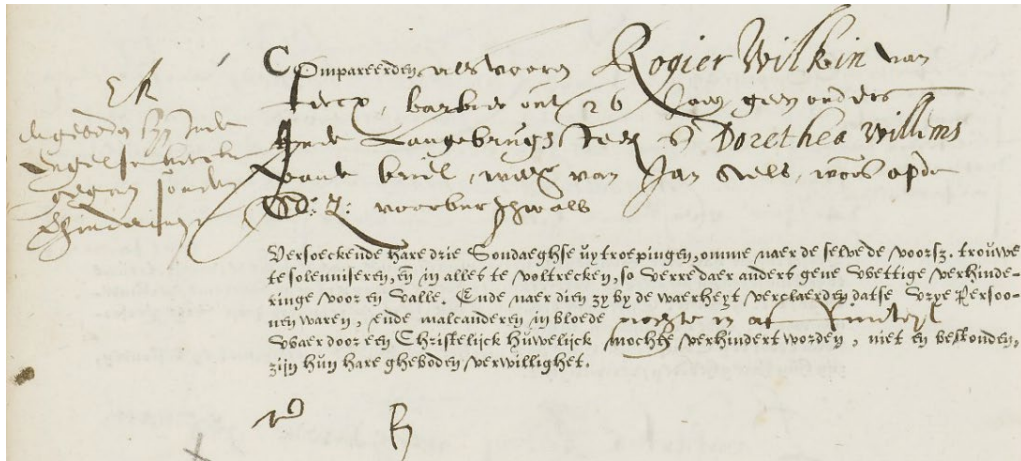 ER
de geboden syn inde
Engelse kercke
gegaen sonder
Compareerden als vooren Rogier Wilkin van
barbier out 26 Jaer geen ouders
Inde Langebrugsteeg & Dorethea Willims
vande briel, wed van Jan woont opde
voorburghwal
Versoeckende hare drie Sondaeghse uytroepingen, omme naer de selve de voorsz. trouwe
te solemniseren, eñ in alles te voltrecken, so verre daer anders gene wettige verhinde-
ringe voor en valle. Ende naer dien zy by de waerheyt verclaerden datse vrye Persoo-
nen waren, ende malcanderen in bloede
waer door een Christelijck huwelijck mochte verhindert worden, niet en bestonden,
zijn hun hare gheboden verwillighet.